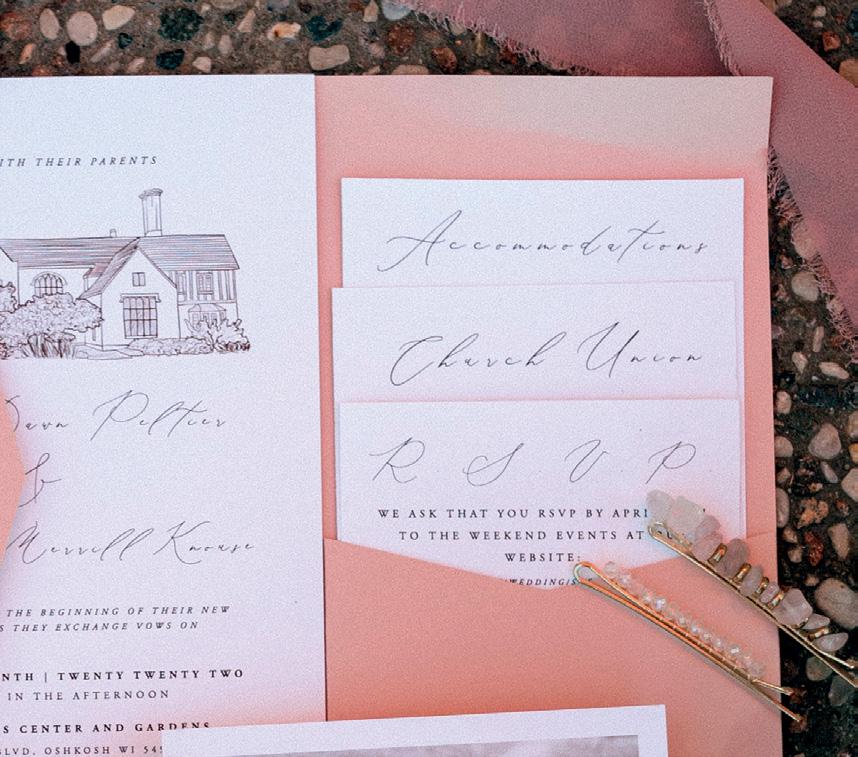 WITH THEIR PARENTS
Dawn Peltier
&
Merrill Knouse
THE BEGINNING OF THEIR NEW
THEY EXCHANGE VOWS ON
| TWENTY TWENTY TWO
IN THE AFTERNOON
CENTER AND GARDENS
BLVD, OSHKOSH WI
Accommodations
Church Union
R S V P
WE ASK THAT YOU RSVP BY
TO THE WEEKEND EVENTS AT
WEBSITE: